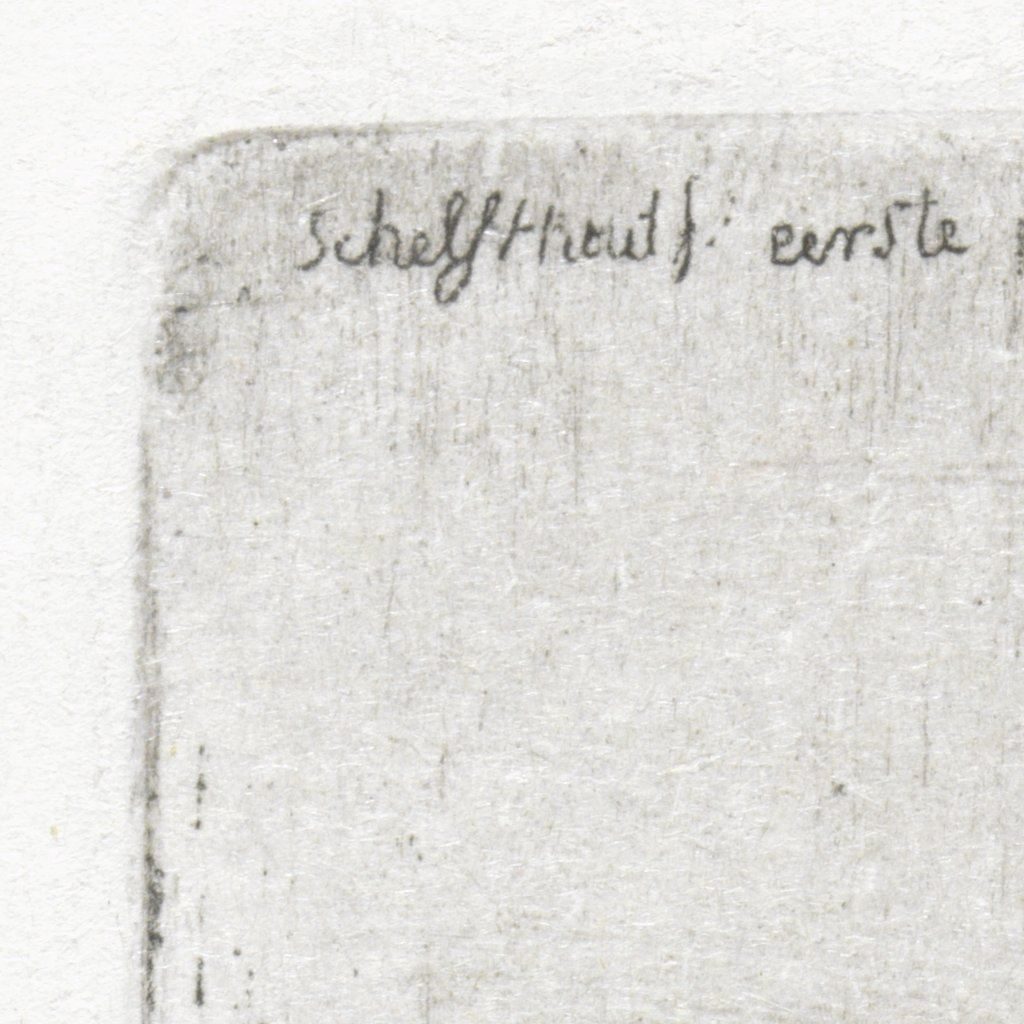 Schelfthout f: eerste